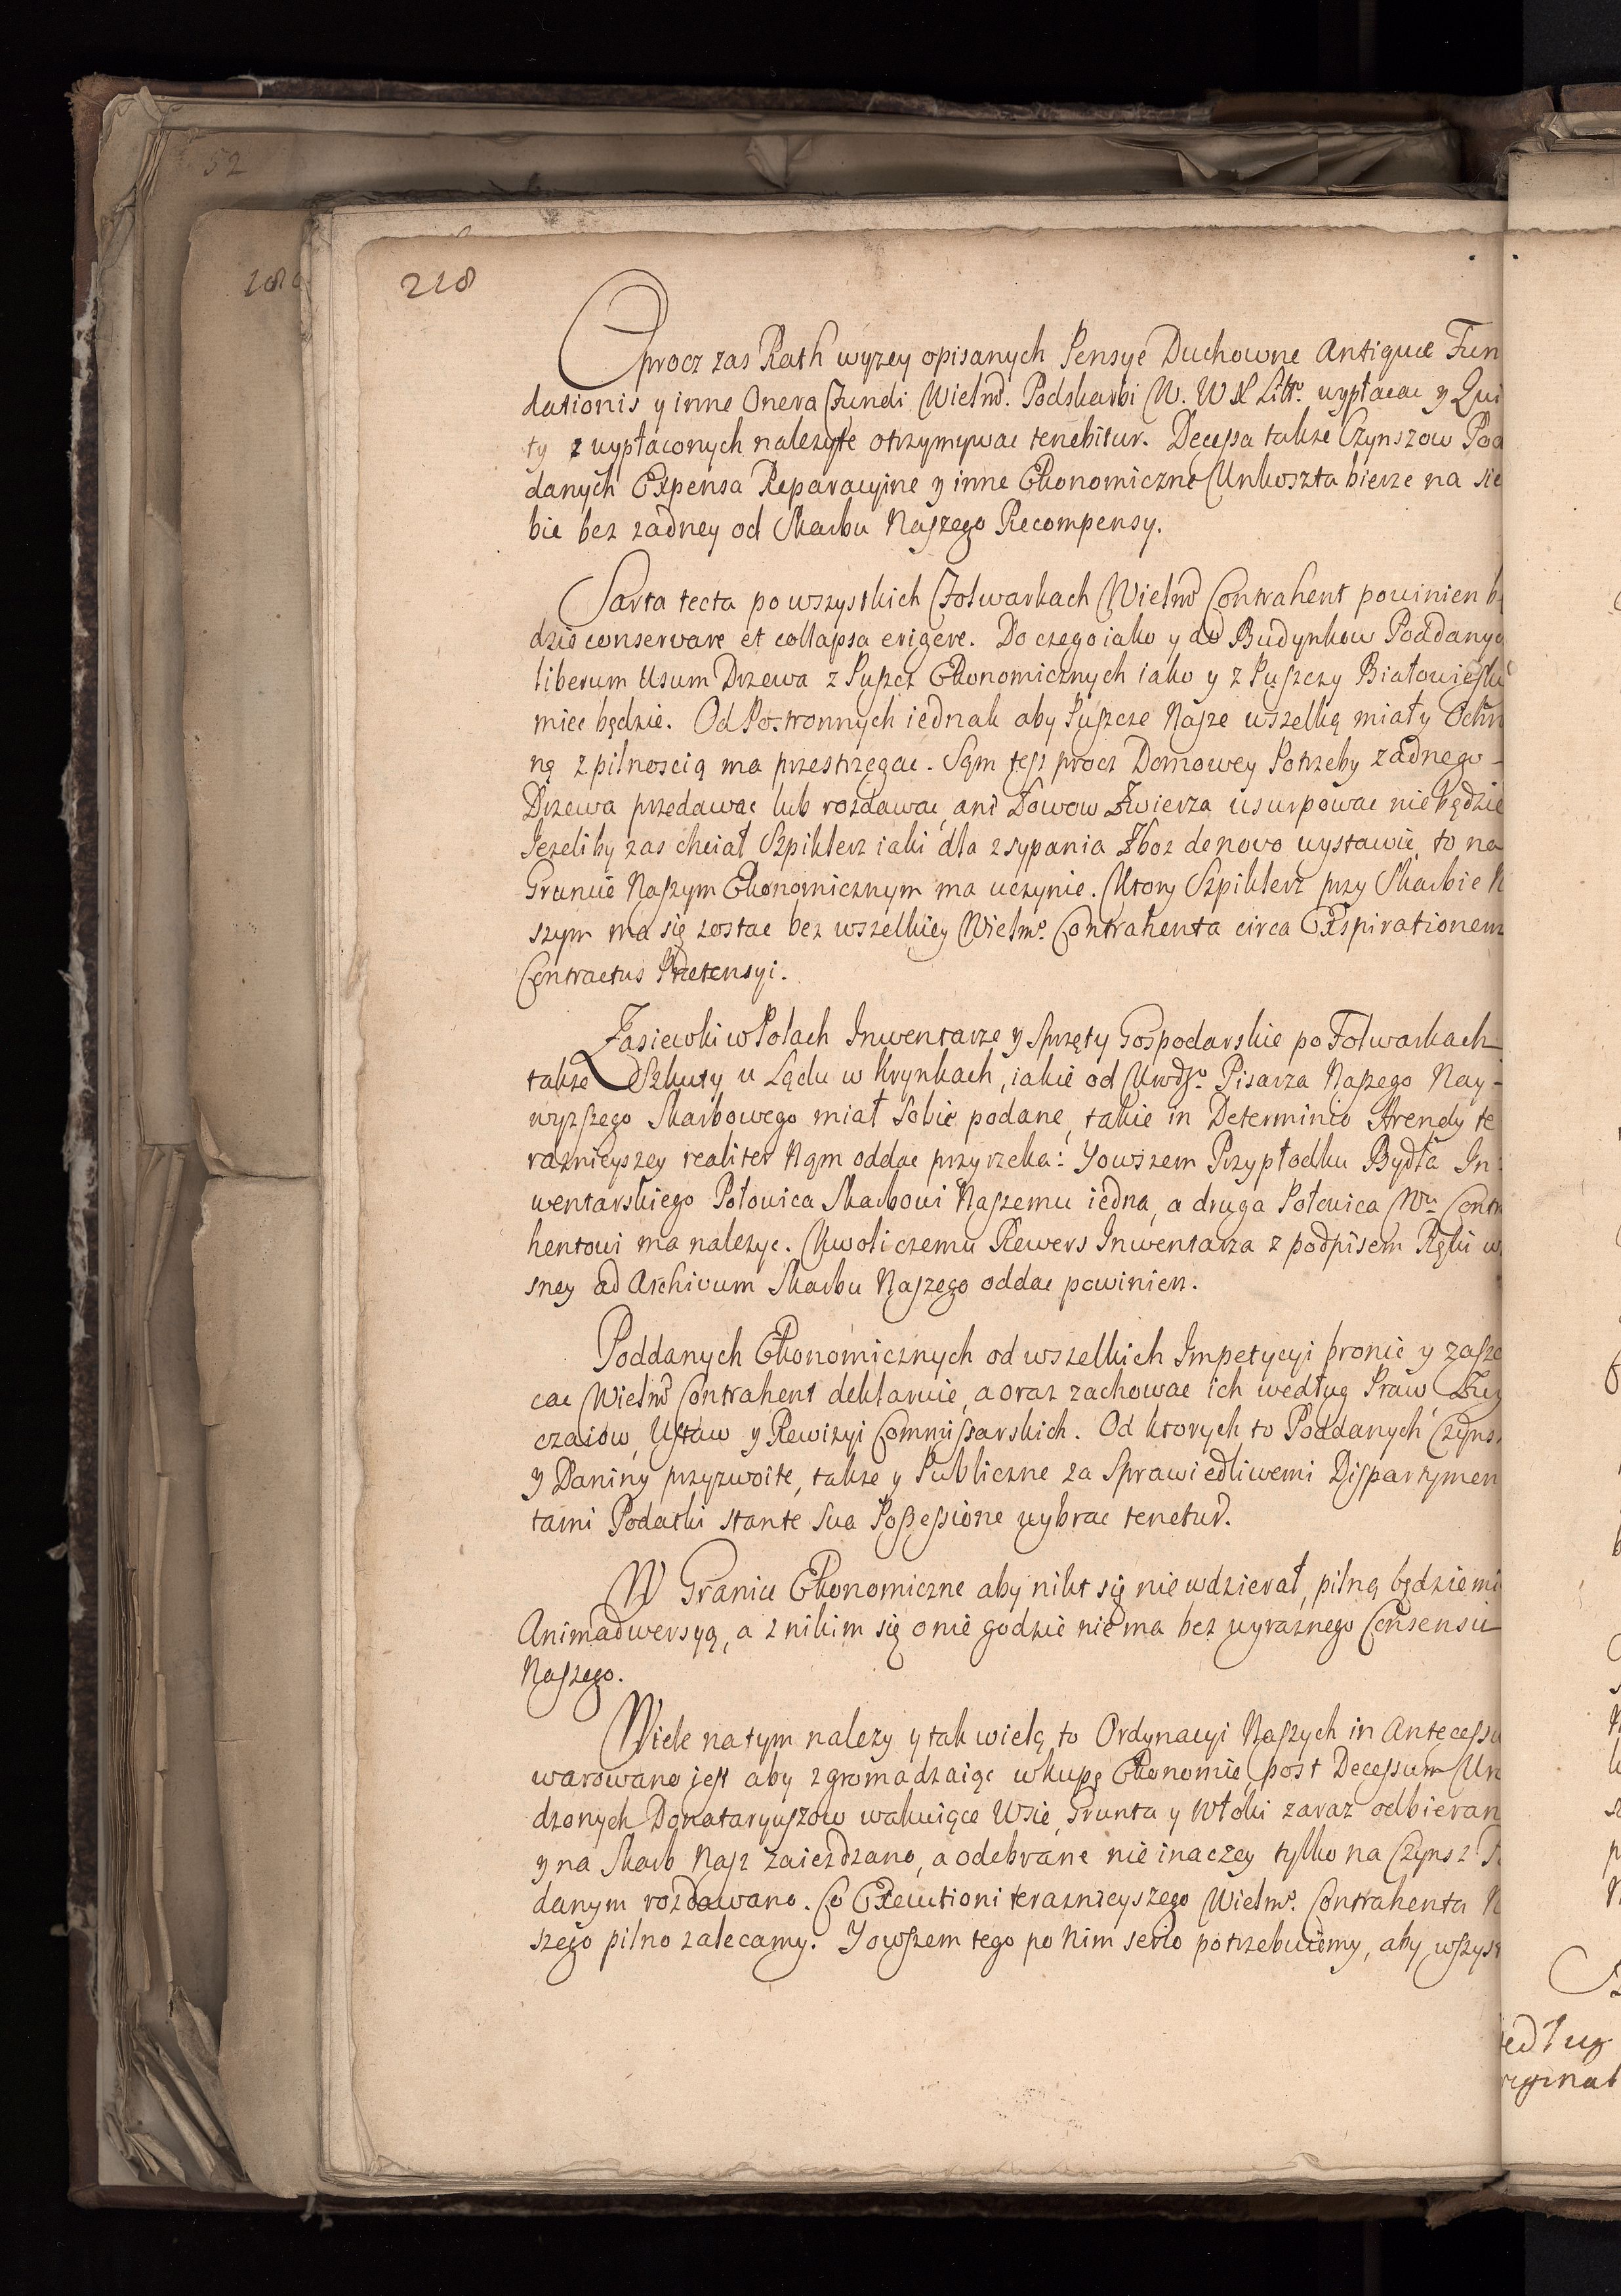 52
218
Oprocz zas Rath wyzey opisanych Pensye Duchowne Antiquae Fun
dationis y inne Onera Fundi Wielmo. Podskarbi N. W X Littr. wypłacac y Qui
ty z wypłaconych nalezyte otrzymywac tenebitur. Decessa takze Czynszow Pod
danych Expensa Reparacyine y inne Ekonomiczne Unkoszta bierze na sie
bie bez zadney od Skarbu Naszego Recompensy.
Sarta tecta po wszystkich Folwarkach Wielmo Contrahent powinien b
dzie conservare et collapsa erigere. Do czego iako y do Budynkow Poddanyc
liberum Usum Drzewa z Puszcz Ekonomicznych iako y z Puszczy Białowiesk
miec będzie. Od Postronnych iednak aby Puszcze Nasze wszelką miały Ochr
nę z pilnoscią ma przestrzegac. Sąm tesz procz Domowey Potrzeby zadnego
Drzewa przedawac lub rozdawac, ani Łowow Zwierza usurpowac niebędzie
Jezeliby zas chciał Szpiklerz iaki dla zsypania Zboz de novo wystawic, to na
Gruncie Naszym Ekonomicznym ma uczynic. Ktory Szpiklerz przy Skarbie N
szym ma się zostac bez wszelkiey Wielmo. Contrahenta circa Exspirationem
Contractus Praetensyi.
Zasiewki w Polach Inwentarze y Sprzęty Gospodarskie po Folwarkach
takze Szkuty u Lądu w Krynkach, iakie od Urodzo. Pisarza Naszego Nay-
wyzszego Skarbowego miał sobie podane, takie in Determinio Arendy te
raznieyszey realiter Nąm oddac przyrzeka: Yowszem Przypłodku Bydła In
wentarskiego Połowica Skarbowi Naszemu iedna, a druga Połowica Wu Contr
hentowi ma nalezyc. Kwoli czemu Rewers Inwentarza z podpisem Ręki w
sney ad Archivum Skarbu Naszego oddac powinien.
Poddanych Ekonomicznych od wszelkich Impetycyi bronic y zaszc
cac Wielmo Contrahent deklaruie, a oraz zachowac ich według Praw, Zwy
czaiow, Ustaw y Rewizyi Commissarskich. Od ktorych to Poddanych Czyns
y Daniny przyzwoite, takze y Publiczne za Sprawiedliwemi Dispartymen
tami Podatki stante sua Possessione wybrac tenetur.
W Granice Ekonomiczne aby nikt się nie wdzierał, pilną będzie mi
Animadwersyą, a z nikim się o nie godzic nie ma bez wyraznego Consensu
Naszego.
Wiele na tym nalezy y tak wielą to Ordynacyi Naszych in Antecessu
warowano jest aby zgromadzaiąc w kupę Ekonomię post Decessum Uro
dzonych Donataryuszow wakuiące Wsie, Grunta y Włoki zaraz odbieran
y na Skarb Nasz zaiezdzano, a odebrane nie inaczey tylko na Czynsz P
danym rozdawano. Co Executioni teraznieyszego Wielmo. Contrahenta N
szego pilno zalecamy. Yowszem tego po Nim serio potrzebuiemy, aby wszyst
edług
riginal